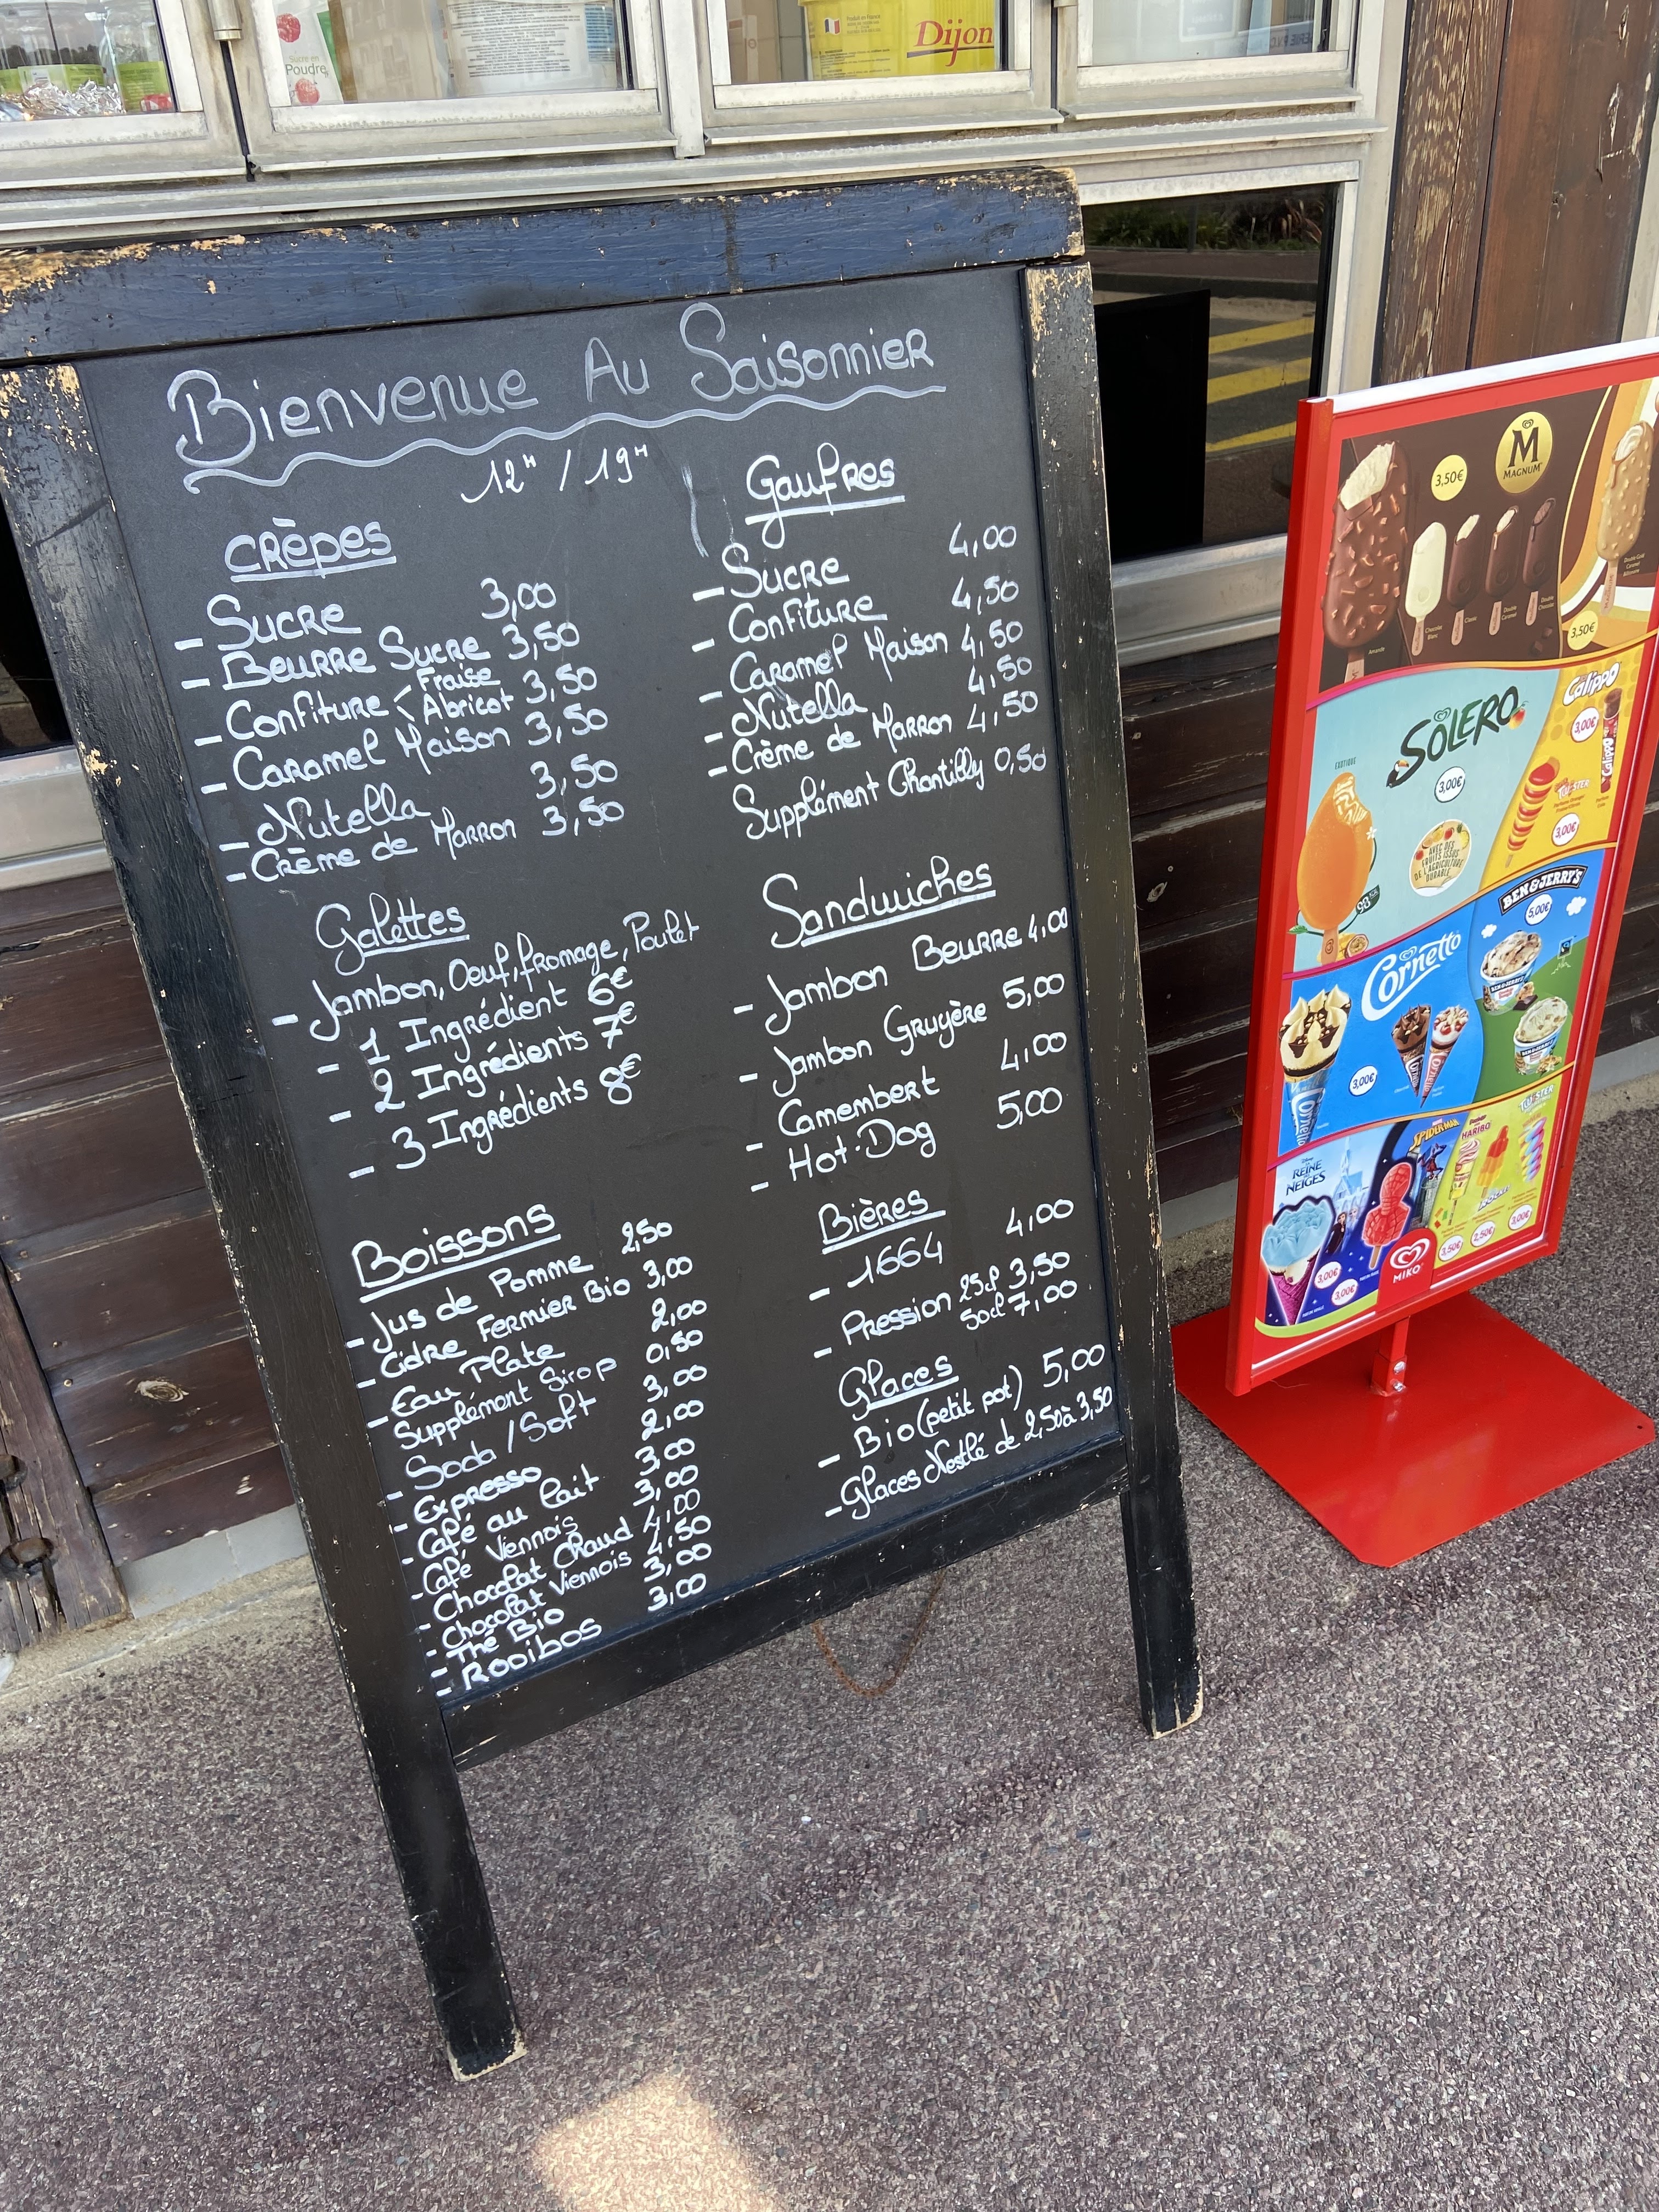 Sucre en
Poudre
Produit en France
Dijon
Bienvenue Au Saisonnier
12H / 19H
CRÊPES
- SUCRE 3,00
- BEURRE SUCRE 3,50
- CONFITURE < Fraise Abricot 3,50
- CARAMEL MAISON 3,50
- Nutella 3,50
- CRÈME de MARRON 3,50
Galettes
- Jambon, Oeuf, fromage, Poulet
- 1 Ingrédient 6€
- 2 Ingrédients 7€
- 3 Ingrédients 8€
Boissons
- Jus de Pomme 2,50
- Cidre Fermier Bio 3,00
- Eau Plate 2,00
Supplément Sirop 0,50
- Soda / Soft 3,00
- Expresso 2,00
- Café au lait 3,00
- Café Viennois 3,00
- Chocolat Chaud 4,00
- Chocolat Viennois 4,50
- Thé Bio 3,00
- Rooibos 3,00
Gaufres
- SUCRE 4,00
- Confiture 4,50
- CARAMEL Maison 4,50
- Nutella 4,50
- Crème de Marron 4,50
Supplément Chantilly 0,50
Sandwiches
- Jambon Beurre 4,00
- Jambon Gruyère 5,00
- Camembert 4,00
- Hot-Dog 5,00
Bières
- 1664 4,00
- Pression 25cl 3,50
50cl 7,00
Glaces
- Bio (petit pot) 5,00
- Glaces Nestlé de 2,50 à 3,50
M
MAGNUM
3,50€
Amande
Chocolat Blanc
Classic
Double Caramel
Double Chocolat
3,50€
SOLERO
EXOTIQUE
3,00€
AVEC DES FRUITS ISSUS DE L'AGRICULTURE DURABLE
Calippo
3,00€
Calippo
TWISTER
3,00€
BEN & JERRY'S
5,00€
Cornetto
3,00€
Disney
REINE DES NEIGES
3,00€
SPIDER-MAN
3,00€
HARIBO
3,50€
2,50€
TWISTER
3,00€
MIKO